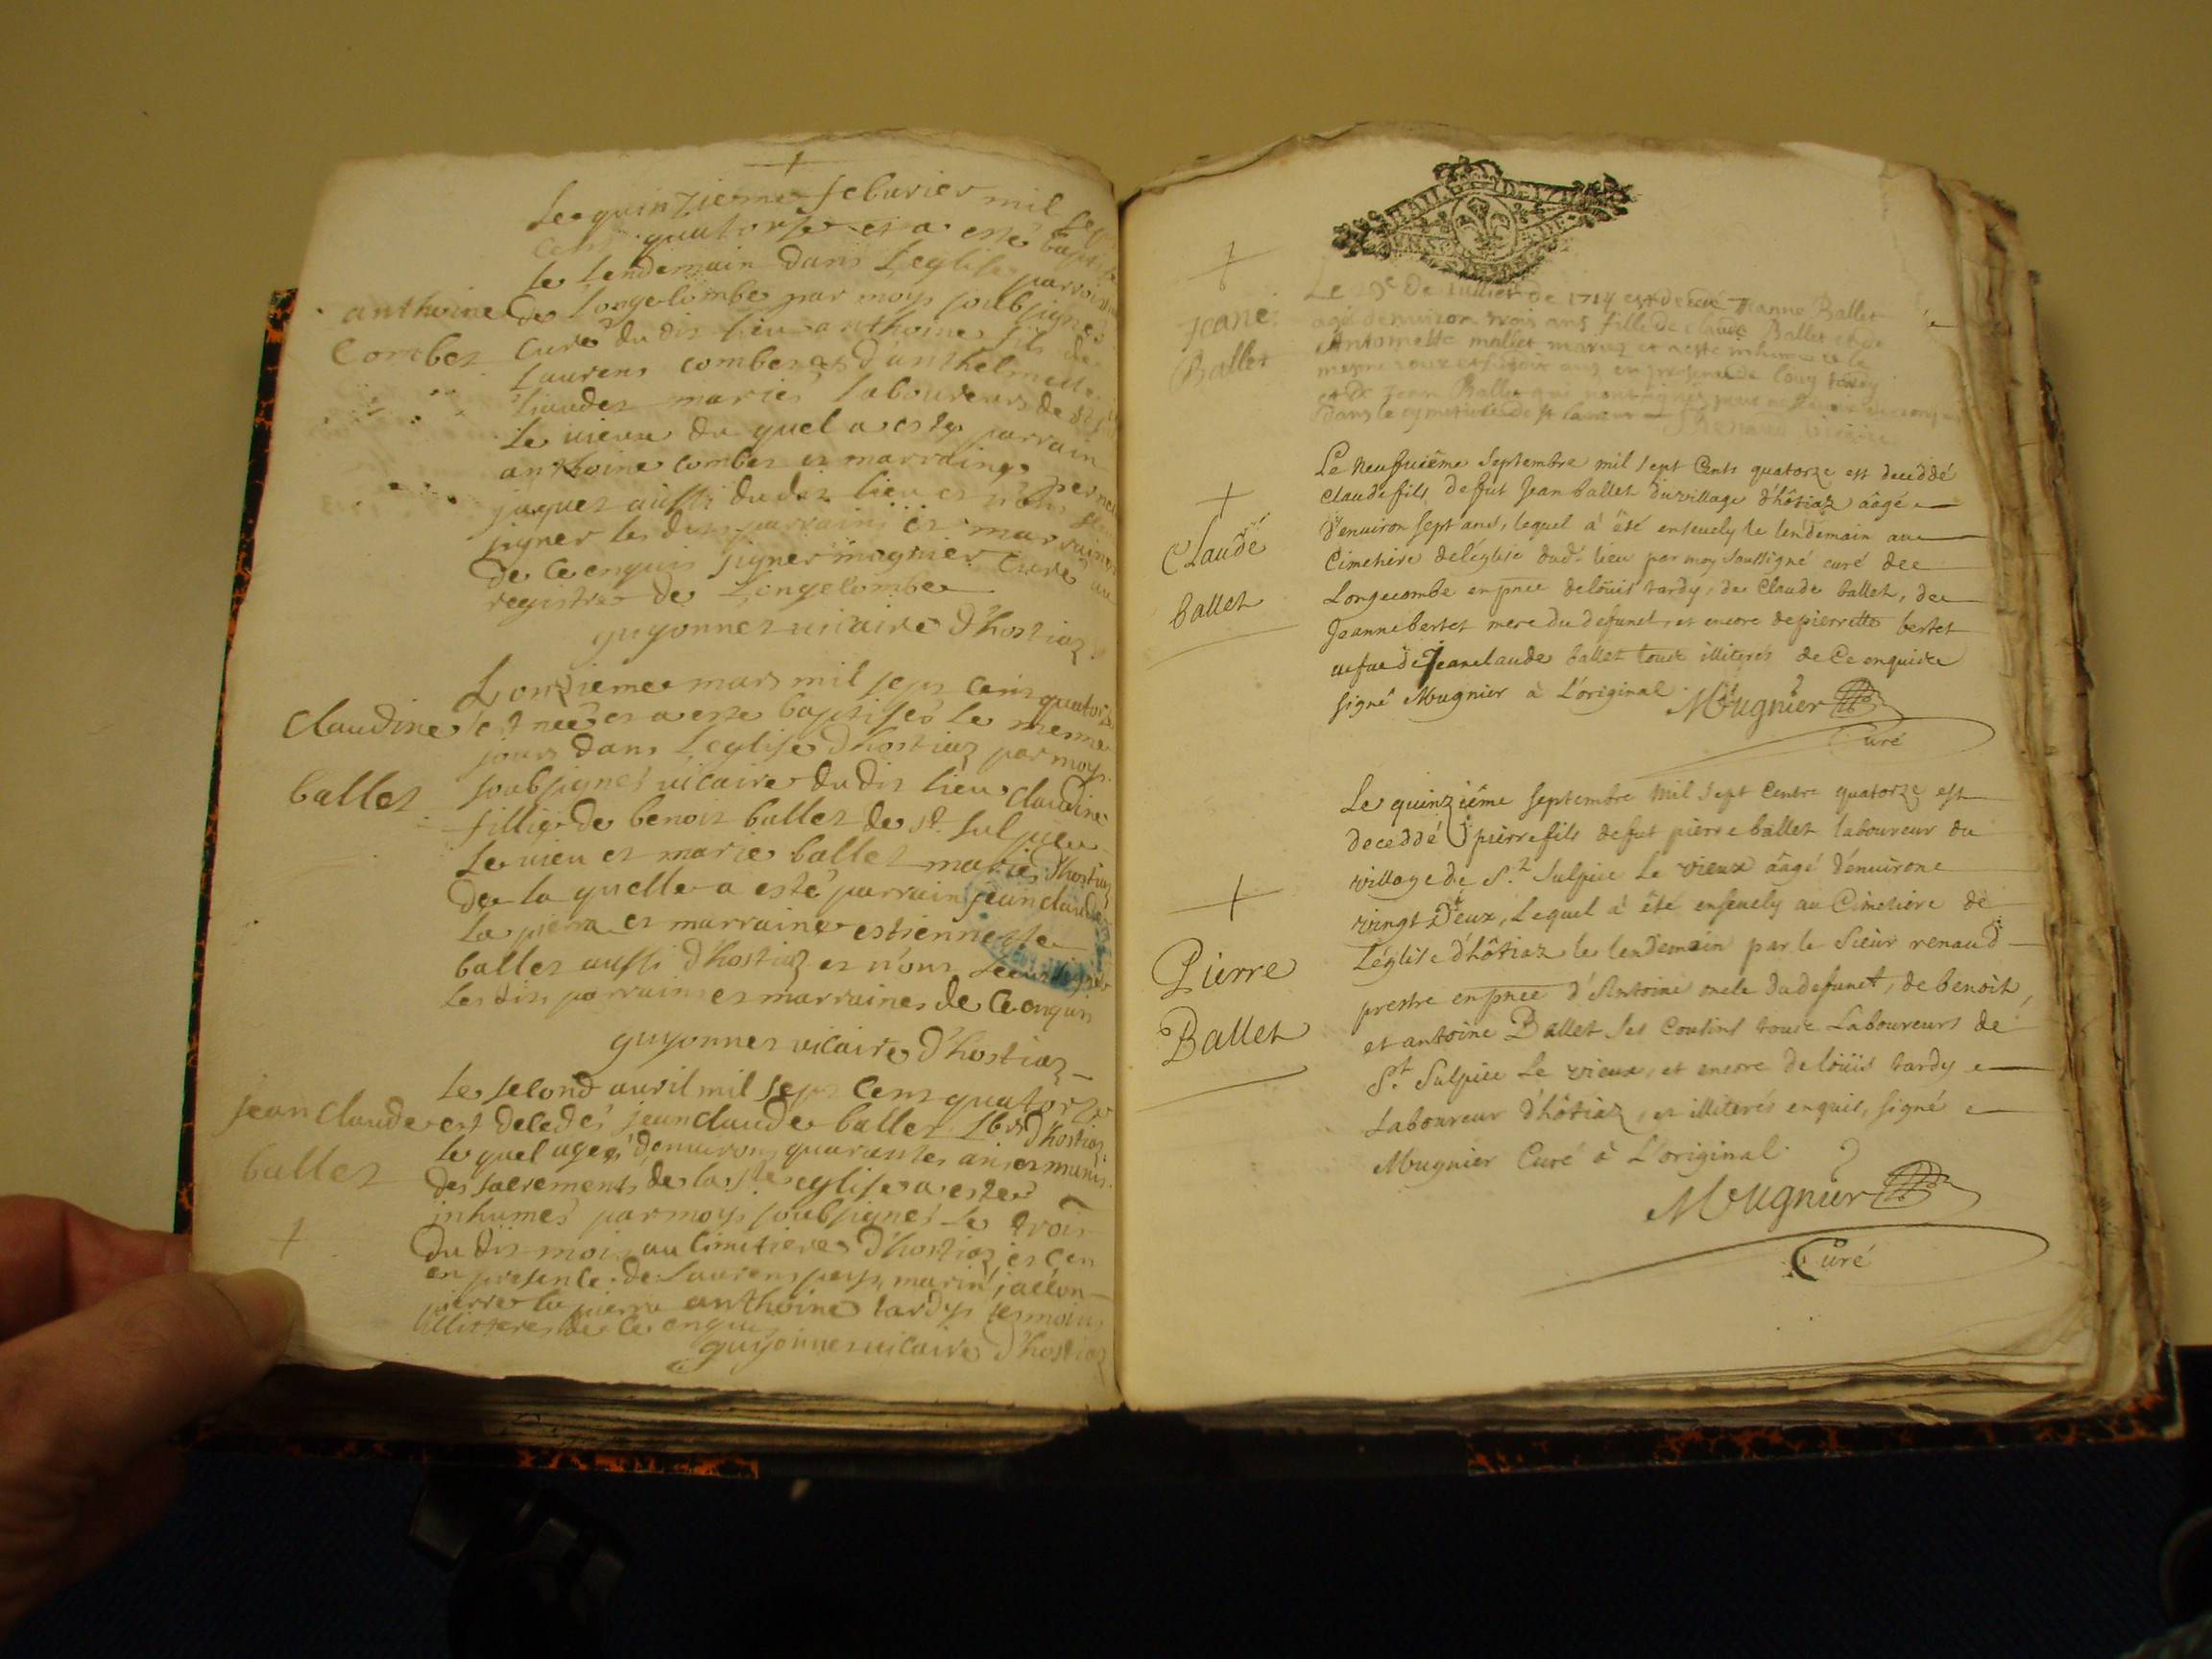 Le quinzieme feburier mil sept
cens quatorse et a esté baptisé
le lendemain dans Leglise parroissi
anthoine de longecombe par moys soubsigné
Combet curé du dit lieu anthoine fils de
Laurens combet et d'anthelmette
maries laboureurs de st
Le vieux du quel a esté parrain
anthoine combet et marraine pernet
jaques aussi dudit lieu et n'ons sceu
signer les dits parrains et marraines
de ce enquis signer mugnier curé au
registre de Longecombe
guyonnet vicaire d'hostiaz
L'onzieme mars mil sept cens quatorze
claudine est neé et a esté baptiseé le mesme
jours dans Leglise d'hostiaz par moys
ballet soubsignés vicaire du dit lieu claudine
fillie de benoit ballet de st. sulpice
Le vieu et marie ballet mariés d'hostiaz
de la quelle a esté parrain jean claude
La pierra et marraine estiennette
ballet aussi d'hostiaz et n'ons sceu signer
Les dits parrains et marraines de ce enquis
guyonnet vicaire d'hostiaz
Le second auril mil sept cens quatorze
jean claude est decedés jean claude ballet d'hostiaz
ballet le quel ageé d'enuirons quarantes ans et munis
des sacrements de la ste eglise a esteé
inhumés par moys soubsignés Le trois
du dit mois au cimitiere d'hostiaz et cen
en presence de Laurens peys, marin jaccon
pierre la pierra anthoine tardys tesmoins
illiteres de ce enquis
guyonnet vicaire d'hostiaz
Jeane Ballet
Le 29e De Juilliet de 1714 est decedé Jeanne Ballet
agé denuiron trois ans fille de claude Ballet et de
Antoinette mallet mariez et a esté inhumeé le
mesme en presence de Louy tardy
et de Jean Ballet qui
dans le cymetiere de st laurent Renaud vicaire
Claude ballet
Le Neufuiême Septembre mil sept Cents quatorze est deceddé
Claude fils de fut Jean ballet du village d'hôtiaz aâgé
d'enuiron sept ans, lequel a été enseuely le lendemain au
Cimetiere de l'église dud. lieu par moy soussigné curé de
Longecombe en pnce de loüis tardy, de Claude ballet, de
Jeanne bertet mere du defunct, et encore de pierrette bertet
uefue de Jeanclaude ballet tous illiterés de ce enquis
signé Mugnier à L'original. Mugnier
Curé
Pierre Ballet
Le quinziême Septembre Mil Sept Cents quatorze est
deceddé pierre fils de fut pierre ballet laboureur du
village de St Sulpice Le vieux aâgé d'enuiron
vingt deux, Lequel a été enseuely au Cimetiere de
L'église d'hôtiaz le lendemain par le Sieur renaud
prestre en pnce d'Antoine oncle du defunct, de benoit,
et antoine Ballet ses Cousins tous Laboureurs de
St Sulpice Le vieux, et encore de loüis tardy
Laboureur d'hôtiaz, et illiterés enquis, signé
Mugnier Curé à L'original.
Mugnier
Curé